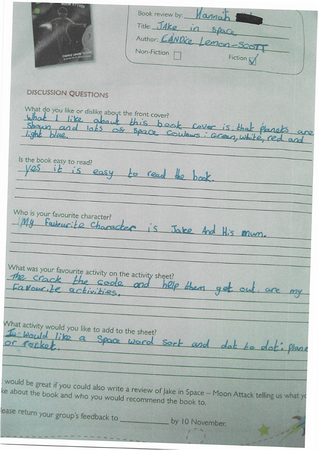 Book review by: Hannah
Title: Jake in Space
Author: CANDice Lemon-SCOTT
Non-Fiction Fiction ✓
DISCUSSION QUESTIONS
What do you like or dislike about the front cover?
What I like about this book cover is that planets are
shown and lots of space coulours: Green, white, red and
light blue.
Is the book easy to read?
yes it is easy to read the book.
Who is your favourite character?
My Favourite Character is Jake And His mum.
What was your favourite activity on the activity sheet?
The crack the code and help them get out are my
favourite activities.
What activity would you like to add to the sheet?
I would like a space word sort and dot to dot: plane
or rocket.
would be great if you could also write a review of Jake in Space – Moon Attack telling us what yo
ke about the book and who you would recommend the book to.
ease return your group's feedback to ____________ by 10 November.